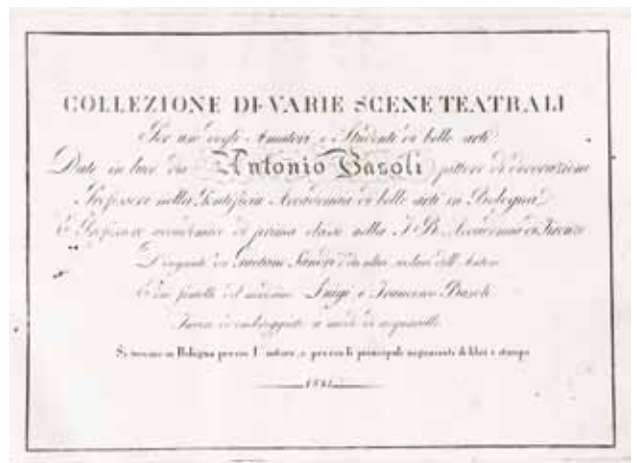 COLLEZIONE DI VARIE SCENE TEATRALI
Per uso degli Amatori, e Studenti di belle arti
Date in luce da Antonio Basoli pittore di decorazione
Professore nella Pontificia Accademia di belle arti in Bologna
E Professore accademico di prima classe nella I. R. Accademia di Firenze
Disegnate da Gaetano Sandri e da altri scolari dell' Autore
E dai fratelli del medesimo Luigi, e Francesco Basoli
Incise e ombreggiate a modo di acquerello
Si trovano in Bologna presso l'autore, e presso li principali negozianti di libri e stampe
1821